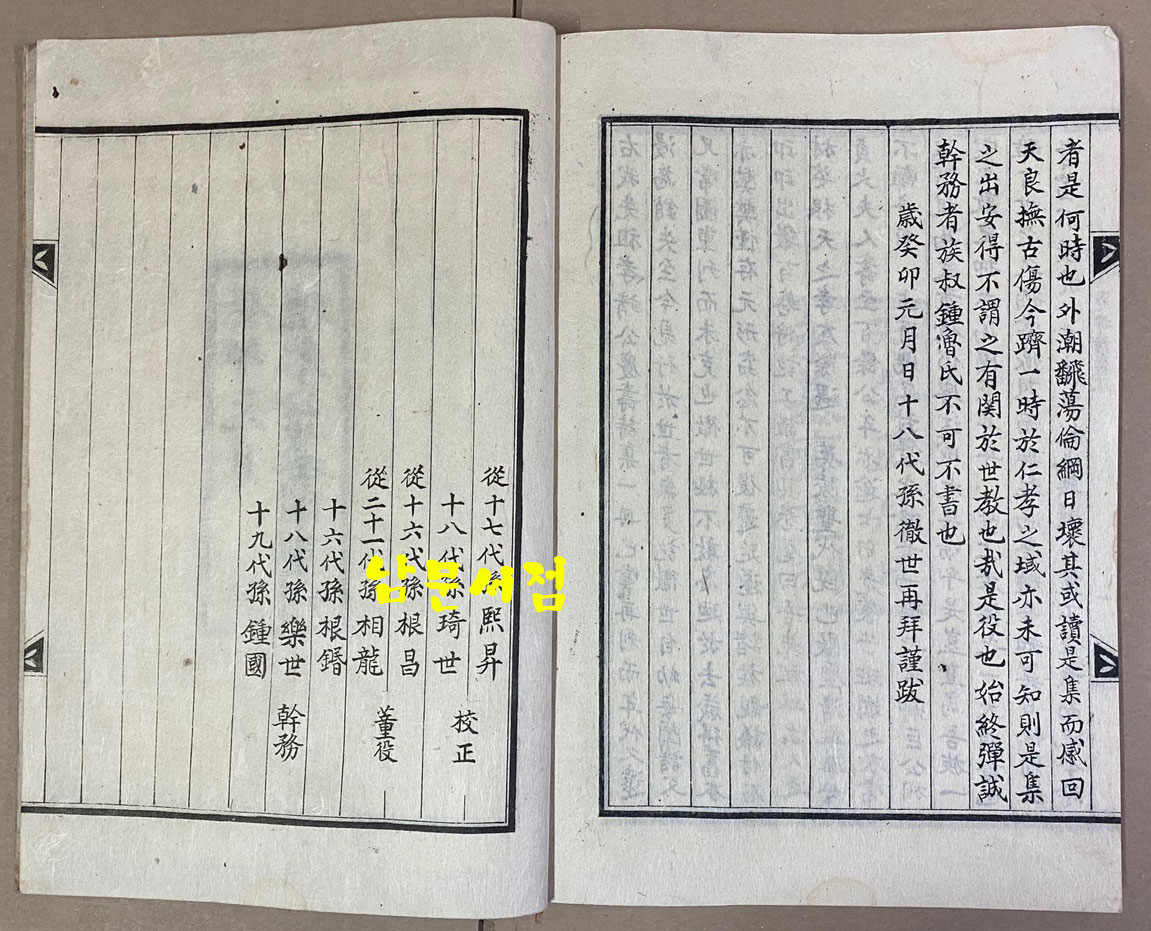 者是何時也外潮飜蕩倫綱日壞其或讀是集而感回
天良撫古傷今躋一時於仁孝之域亦未可知則是集
之出安得不謂之有関於世教也哉是役也始終彈誠
幹務者族叔鍾魯氏不可不書也
歲癸卯元月日十八代孫徹世再拜謹跋
從十七代孫熙昇
十八代孫琦世 校正
從十六代孫根昌
從二十一代孫相龍 董役
十六代孫根錉
十八代孫樂世 幹務
十九代孫鍾國
삼문서점